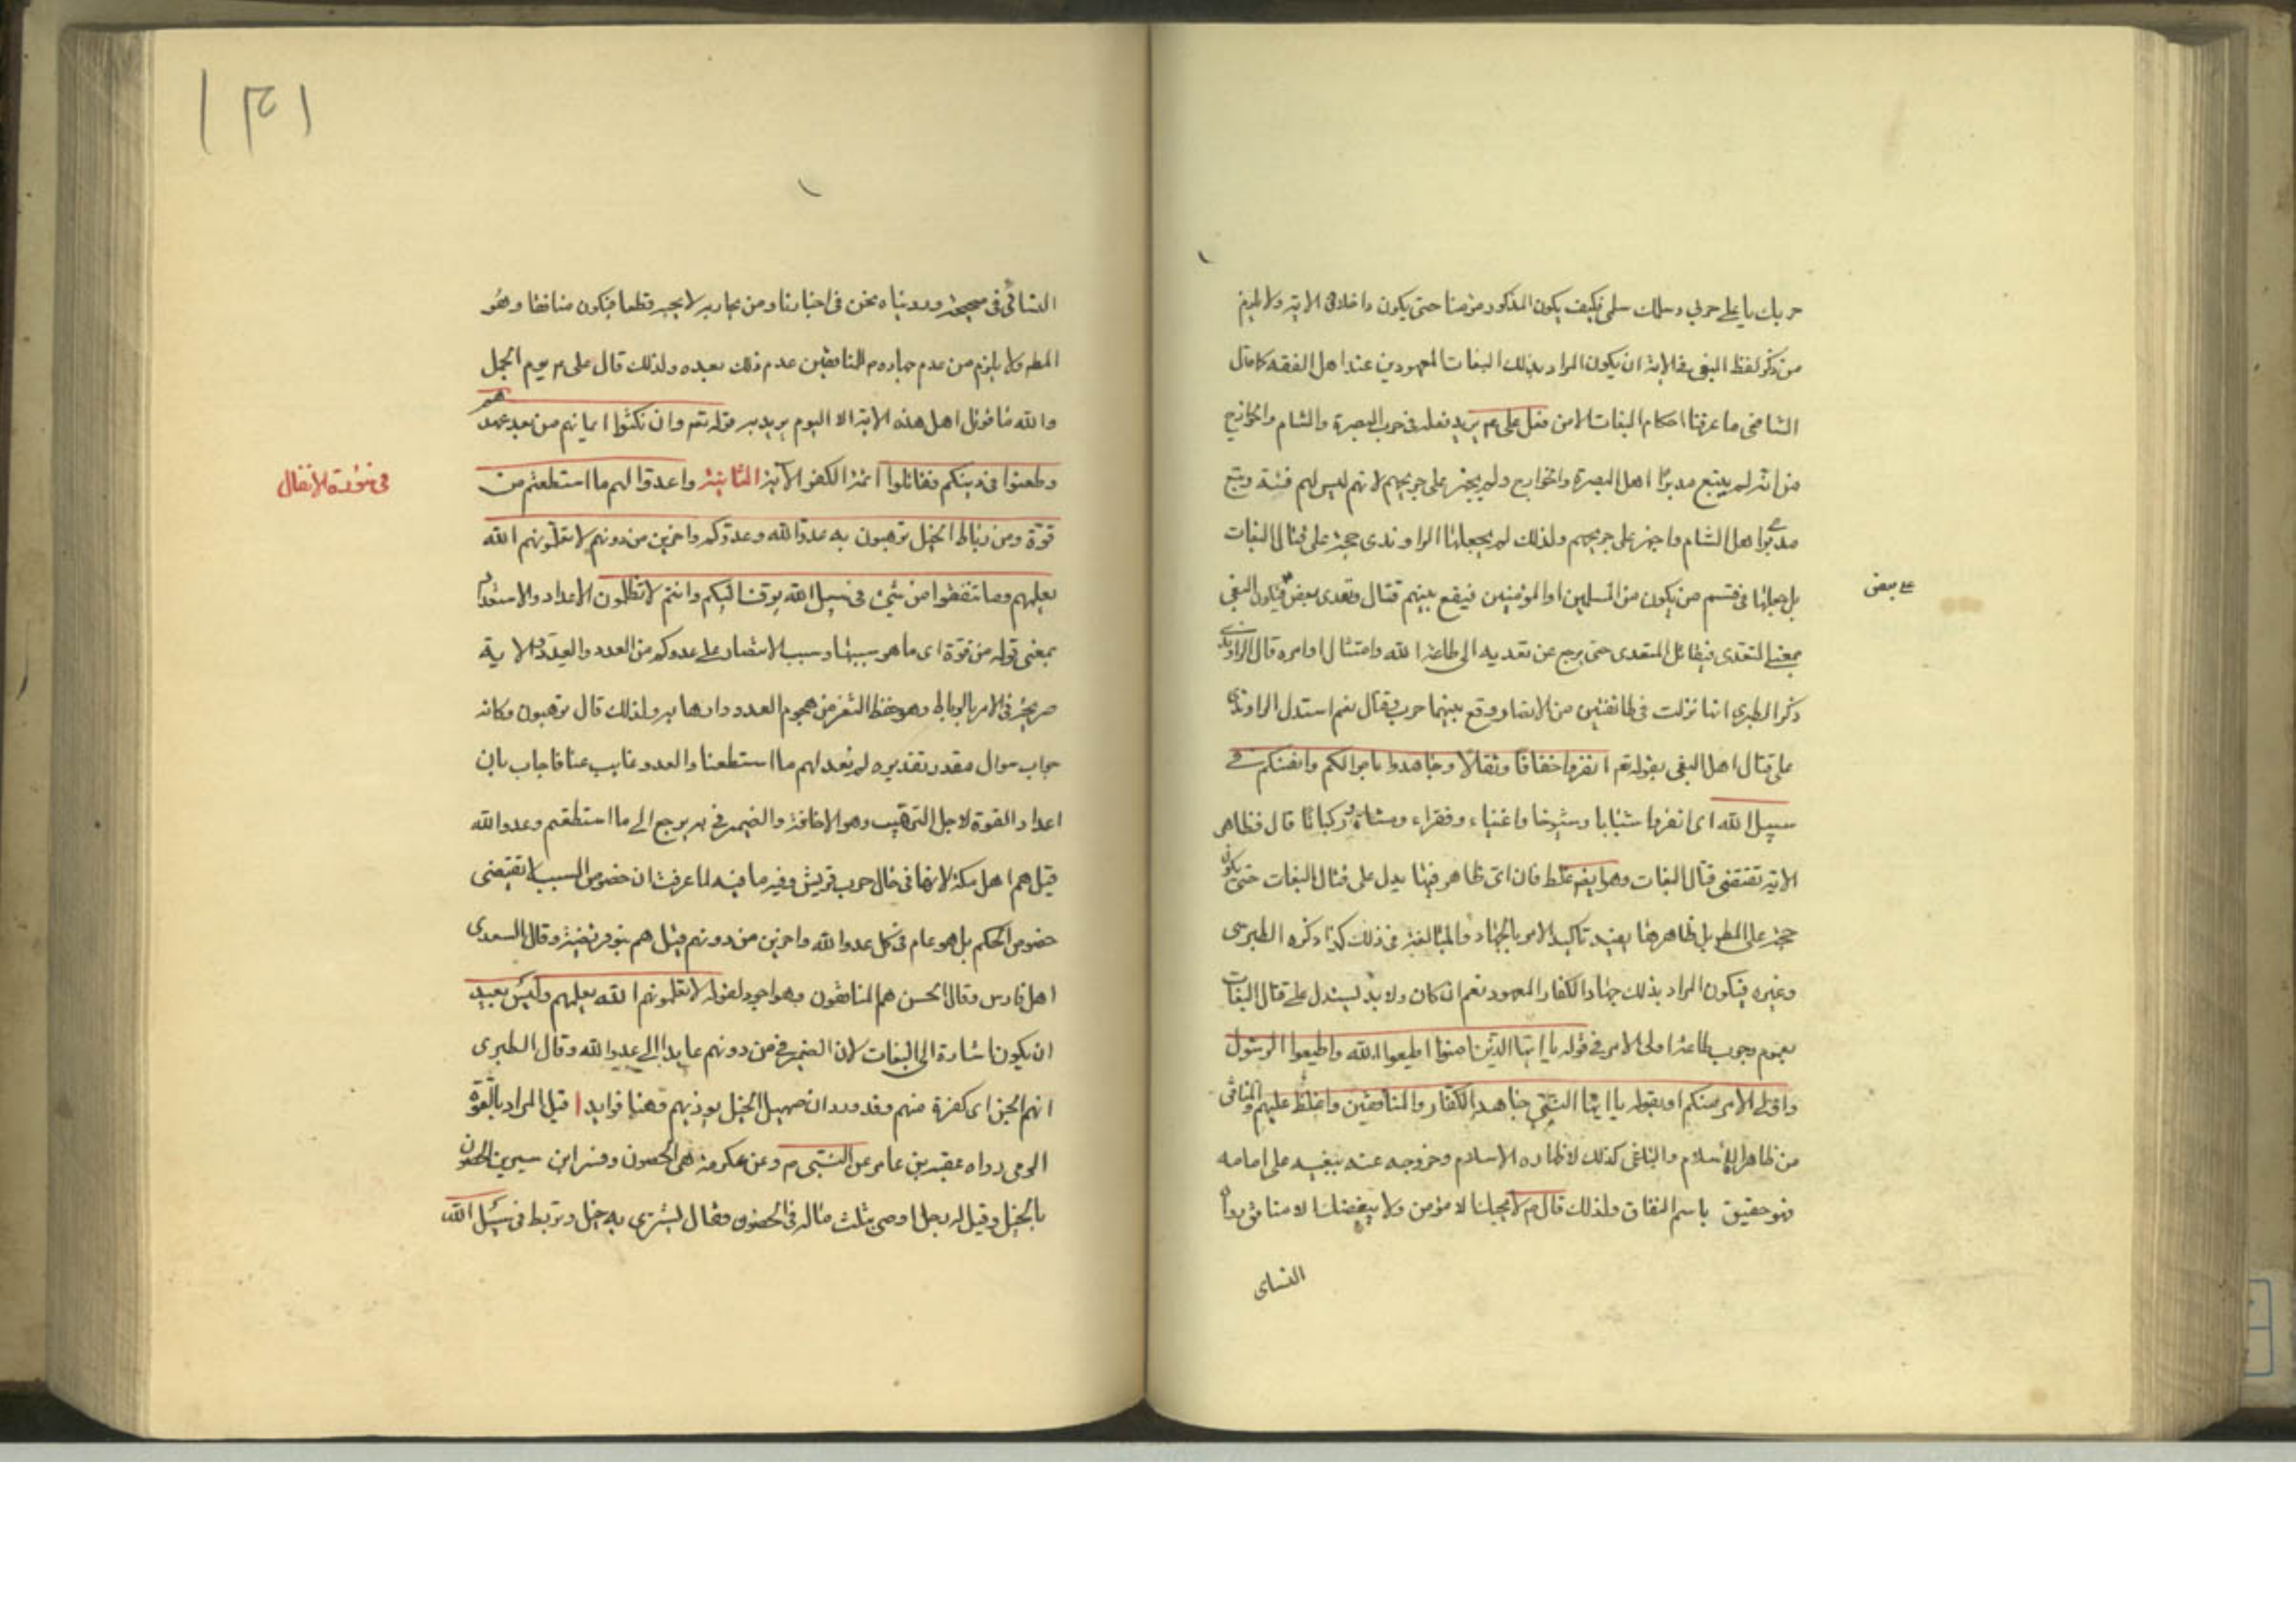 حربك يا علي حربي وسلمك سلمي فكيف يكون المذكور مؤمنا حتى يكون داخلا في الاية ولا يلزم
من ذكر لفظ البغي في الاية ان يكون المراد بذلك البغات المعهودين عند اهل الفقه كما قال
الشافعي ما عرفنا احكام البغات الا من فعل علي عم يريد فعله في حرب البصرة والشام والخوارج
من انه لم يتبع مدبرا اهل البصرة والخوارج ولم يجهز على جريحهم لانهم ليس لهم فئة وتبع
مدبرا اهل الشام واجهز على جريحهم ولذلك لم يجعلها الراوندي حجة على قتال البغات
بل جعلها في قسم من يكون من المسلمين او المؤمنين فيقع بينهم قتال وتعدى بعض فيكون البغي
على بعض
بمعنى التعدي فيقاتل المتعدي حتى يرجع عن تعديه الى طاعة الله وامتثال اوامره قال الراوندي
ذكر الطبري انها نزلت في طائفتين من الانصار وقع بينهما حرب وقتال نعم استدل الراوندي
على قتال اهل البغي بقوله تع انفروا خفافا وثقالا وجاهدوا باموالكم وانفسكم في
سبيل الله اى انفروا شبابا وشيوخا واغنياء وفقراء ومشاة وركبانا قال فظاهر
الاية تقتضي قتال البغات وهو ايضا غلط فان اى ظاهر فيها يدل على قتال البغات حتى يكون
حجة على المط بل ظاهرها يفيد تاكيد الامر بالجهاد والمبالغة في ذلك كذا ذكره الطبرسي
وغيره فيكون المراد بذلك جهاد الكفار المعهود نعم ان كان ولا بد ليستدل على قتال البغات
بعموم وجوب طاعة اولى الامر في قوله يا ايها الذين امنوا اطيعوا الله واطيعوا الرسول
واولى الامر منكم او بقوله يا ايها النبي جاهد الكفار والمنافقين واغلظ عليهم والمنافق
من ظاهر الاسلام والباغي كذلك لاظهاره الاسلام وخروجه عنه ببغيه على امامه
فهو حقيق باسم النفاق ولذلك قال م لا يحبك الا مؤمن ولا يبغضك الا منافق رواه
النساى
١٣١
النسائي في صحيحه ورويناه نحن في اخبارنا ومن يحاربه لا يحبه قطعا فيكون منافقا وهو
المط ولا يلزم من عدم جهاده م للمنافقين عدم ذلك بعده ولذلك قال علي م يوم الجمل
والله ما قوتل اهل هذه الاية الا اليوم يريد به قوله تع وان نكثوا ايمانهم من بعد عهدهم
وطعنوا في دينكم فقاتلوا ائمة الكفر الاية الثانية واعدوا لهم ما استطعتم من
في سورة الانفال
قوة ومن رباط الخيل ترهبون به عدو الله وعدوكم واخرين من دونهم لا تعلمونهم الله
يعلمهم وما تنفقوا من شئ في سبيل الله يوف اليكم وانتم لا تظلمون الاعداد والاستعداد
بمعنى قوله من قوة اى ما هو سببها وسبب الانتصار على عدوكم من العدد والعدة والاية
صريحة في الامر بالرباط وهو حفظ الثغر من هجوم العدو وارهابه ولذلك قال ترهبون وكانه
جواب سوال مقدر تقديره لم نعد لهم ما استطعنا والعدو غايب عنا فاجاب بان
اعداد القوة لاجل الترهيب وهو الاخافة والضمير في به يرجع الى ما استطعتم وعدو الله
قيل هم اهل مكة لانها في حال حرب قريش وفيه ما فيه لما عرفت ان خصوص السبب لا تقتضى
خصوص الحكم بل هو عام في كل عدو الله واخرين من دونهم قيل هم بنو قريضة وقال السدي
اهل فارس وقال الحسن هم المنافقون وهو اجود لقوله لا تعلمونهم الله يعلمهم وليس ببعيد
ان يكون اشارة الى البغات لان الضمير في من دونهم عايدا الى عدو الله وقال الطبري
انهم الجن اى كفرة منهم وقد ورد ان صهيل الخيل يوذيهم وهنا فوايد ا قيل المراد بالقوة
الرمى رواه عقبة بن عامر عن النبى م وعن عكرمة هى الحصون وفسر ابن سيرين الحصون
بالخيل وقيل له رجل اوصى بثلث ماله في الحصون فقال يشترى به خيل وتربط في سبيل الله